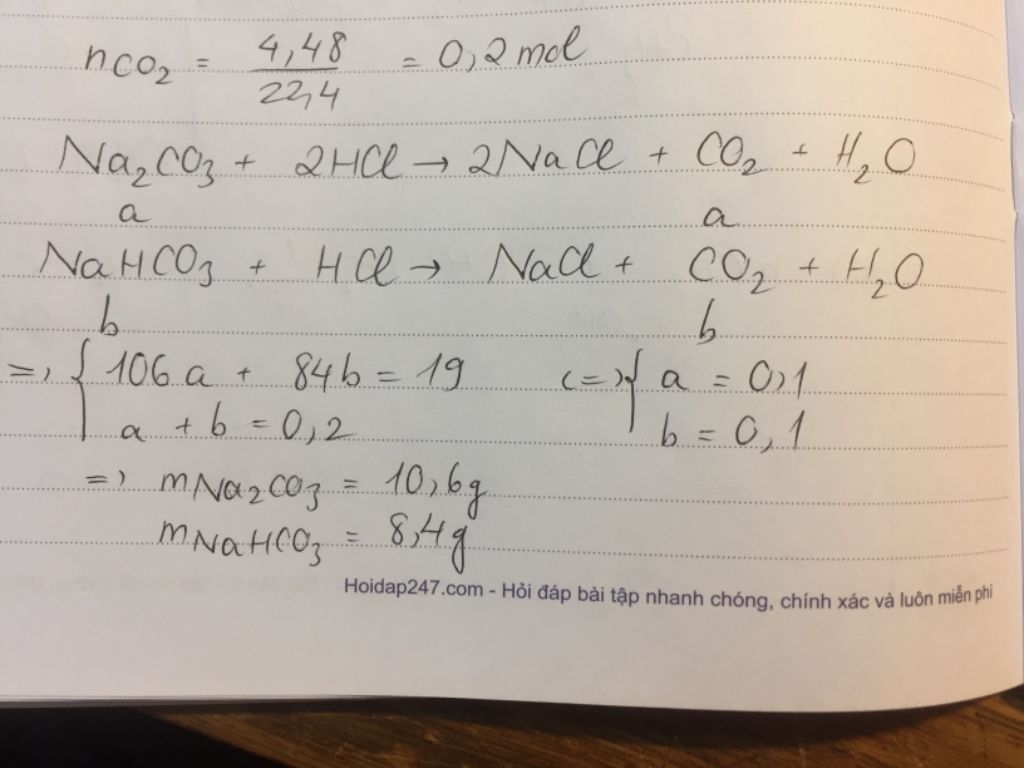 nCO₂ = 4,48 / 22,4 = 0,2 mol
Na₂CO₃ + 2HCl → 2NaCl + CO₂ + H₂O
a a
NaHCO₃ + HCl → NaCl + CO₂ + H₂O
b b
=> { 106a + 84b = 19 <=> { a = 0,1
a + b = 0,2 b = 0,1
=> mNa₂CO₃ = 10,6g
mNaHCO₃ = 8,4g
Hoidap247.com - Hỏi đáp bài tập nhanh chóng, chính xác và luôn miễn phí